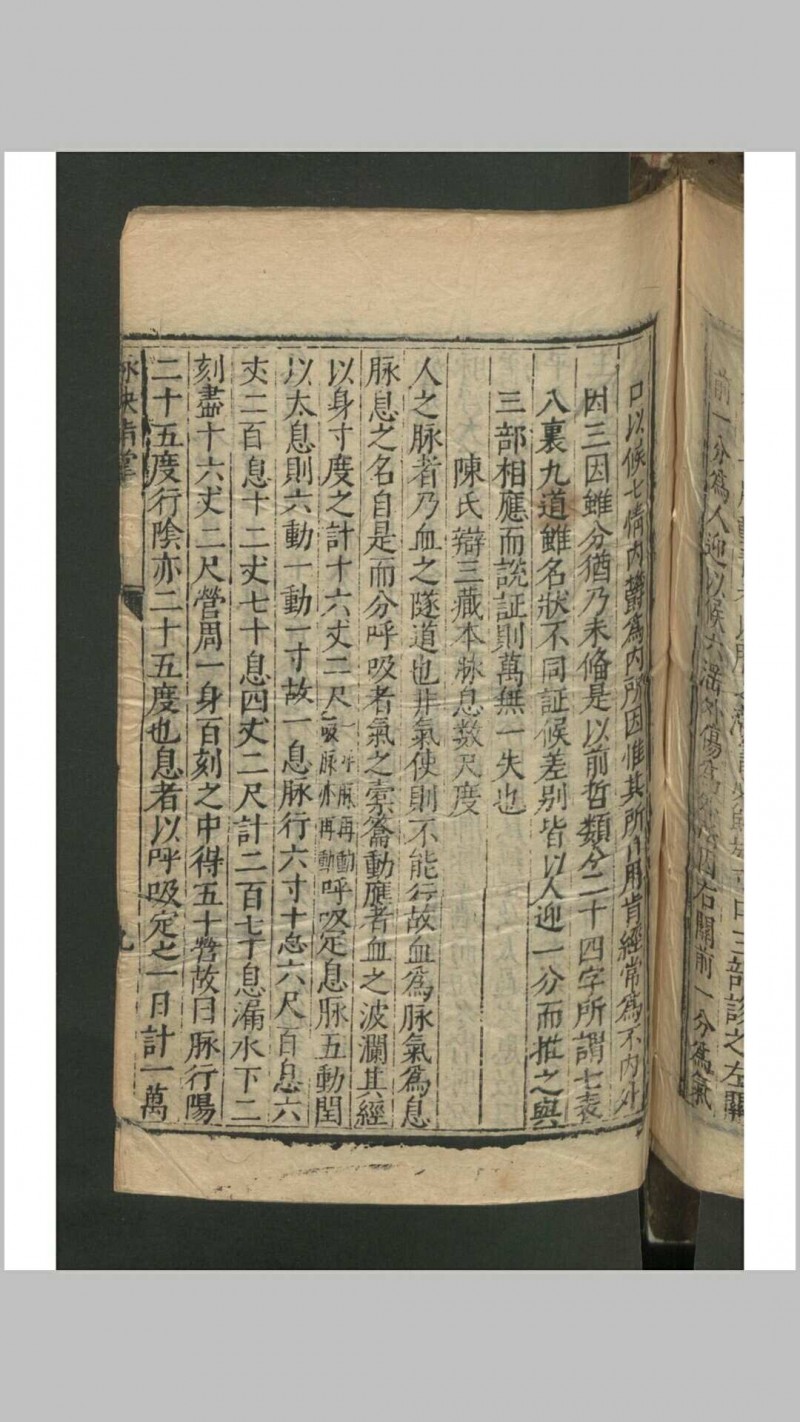 前一分爲人迎以候六淫外傷爲外所因右關前一分爲氣
口以候七情內鬱爲內所因惟其所自用背經常爲不內外
因三因雖分猶乃未俻是以前哲類分二十四字所謂七表
八裏九道雖名狀不同証候差别皆以人迎一分而推之與
三部相應而說証則萬無一失也
陳氏辯三藏本脉息数尺度
人之脉者乃血之隧道也非氣使則不能行故血爲脉氣爲息
脉息之名自是而分呼吸者氣之橐籥動應者血之波瀾其經
以身寸度之計十六丈二尺一呼脉再動一吸脉亦再動呼吸定息脉五動閏
以太息則六動一動一寸故一息脉行六寸十息六尺百息六
丈二百息十二丈七十息四丈二尺計二百七十息漏水下二
刻盡十六丈二尺營周一身百刻之中得五十營故曰脉行陽
二十五度行陰亦二十五度也息者以呼吸定之一日計一萬
脉訣指掌
九